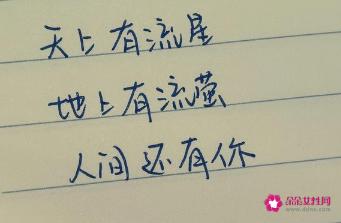 天上有流星
地上有流萤
人间还有你
朵朵女性网